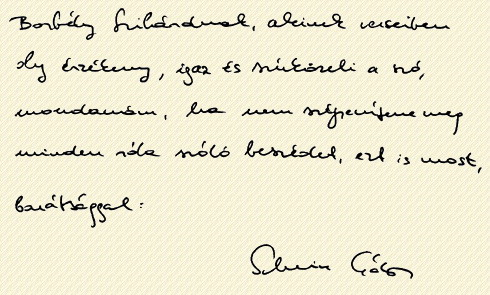 Borbély Szilárdnak, akinek verseiben
oly érzékeny, igaz és szűkszeli a szó,
mondanám, ha nem szégyenítene meg
minden róla szóló beszédet, ezt is most,
barátsággal:
Schein Gábor